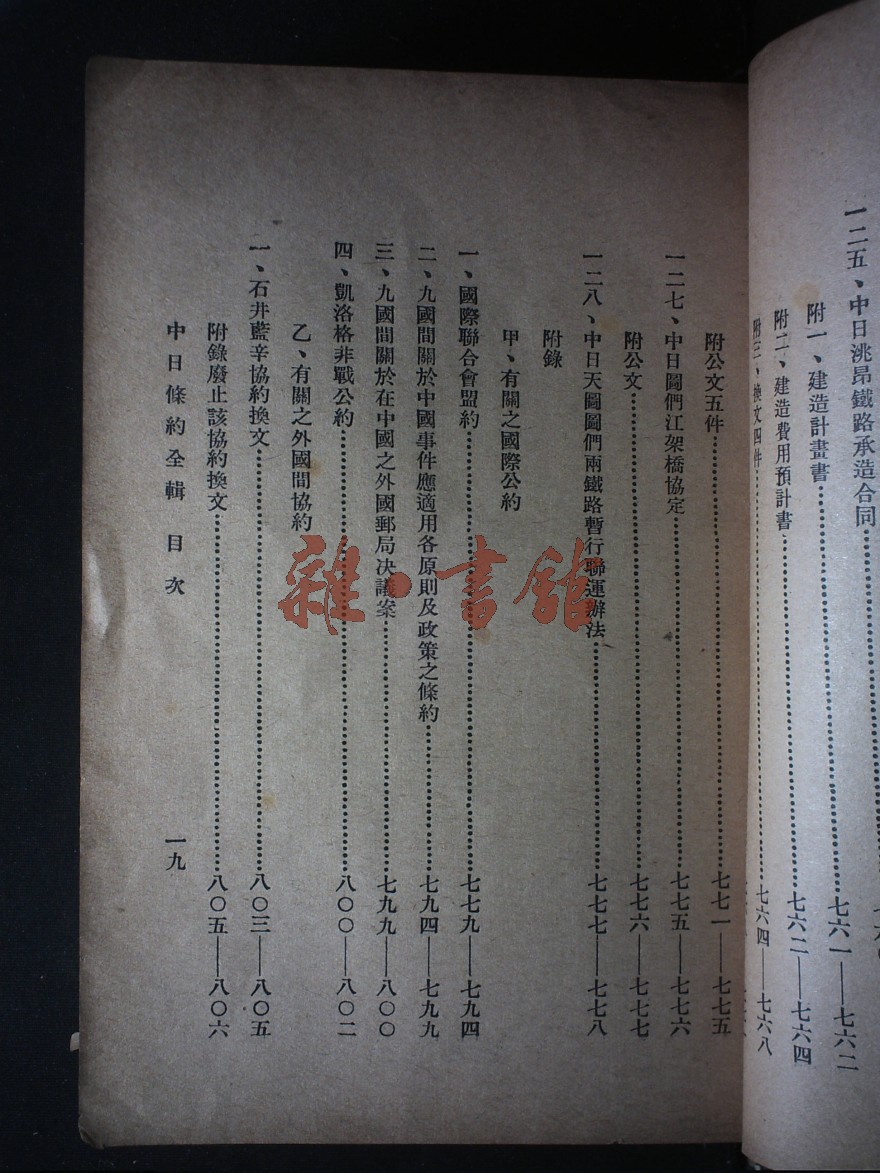 一二五、中日洮昂鐵路承造合同
附一、建造計畫書……七六一——七六二
附二、建造費用預計書……七六二——七六四
附三、換文四件……七六四——七六八
附公文五件……七七一——七七五
一二七、中日圖們江架橋協定……七七五——七七六
附公文……七七六——七七七
一二八、中日天圖圖們兩鐵路暫行聯運辦法……七七七——七七八
附錄
甲、有關之國際公約
一、國際聯合會盟約……七七九——七九四
二、九國間關於中國事件應適用各原則及政策之條約……七九四——七九九
三、九國間關於在中國之外國郵局決議案……七九九——八〇〇
四、凱洛格非戰公約……八〇〇——八〇二
乙、有關之外國間協約
一、石井藍辛協約換文……八〇三——八〇五
附錄廢止該協約換文……八〇五——八〇六
中日條約全輯 目次 一九
雜·書館